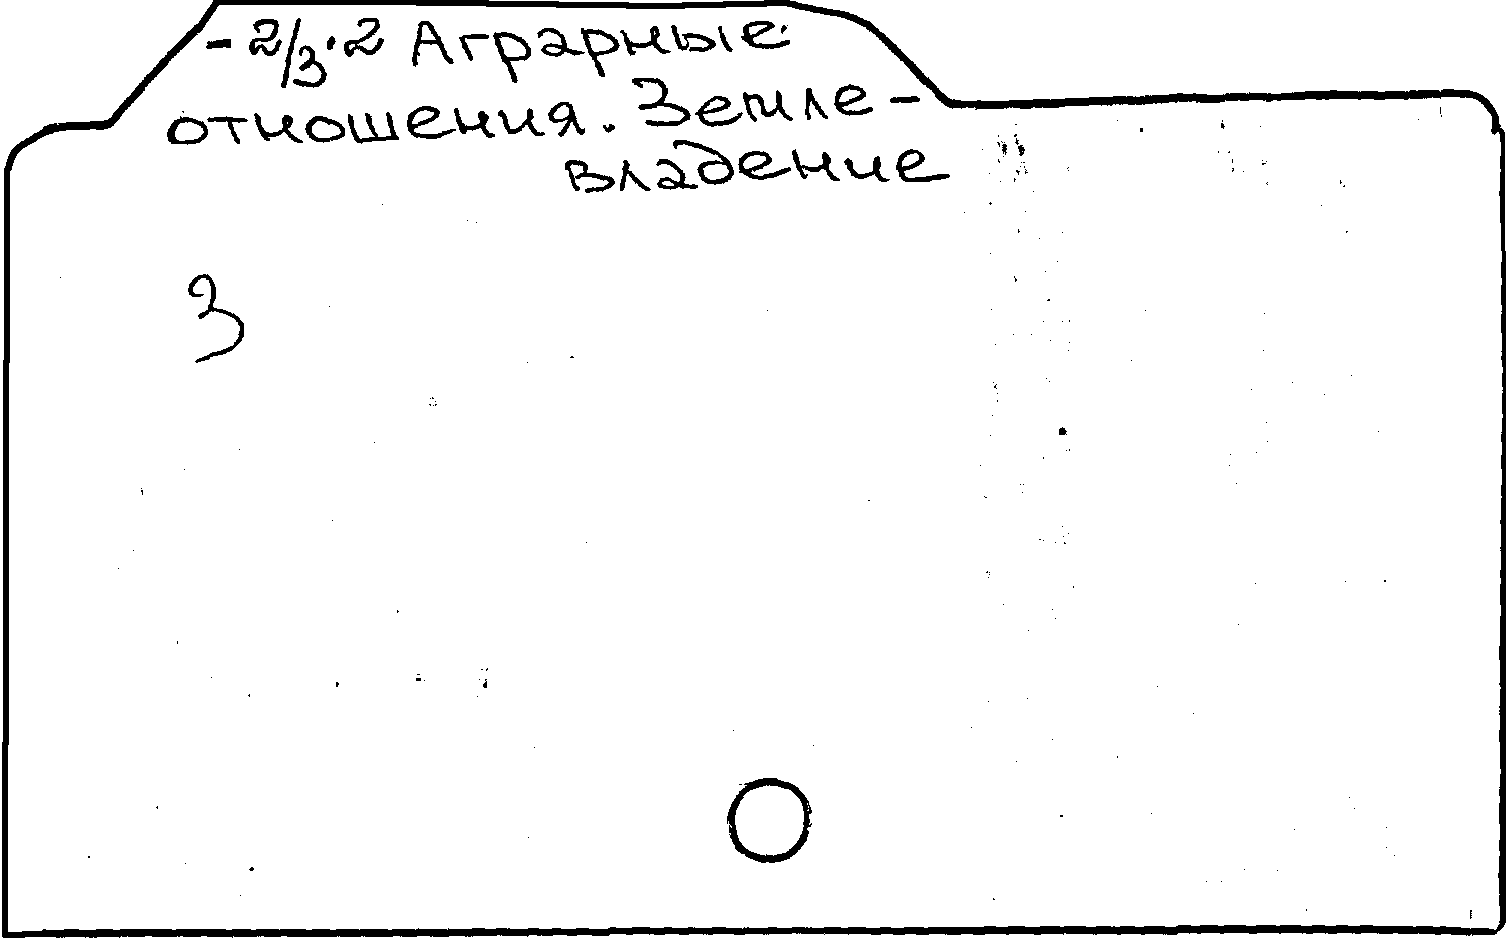 - 2/3.2 Аграрные
отношения.Земле-
владение
3